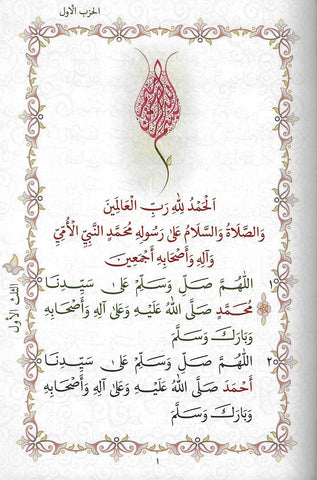 الحزب الأول
اَلْحَمْدُ لِلّٰهِ رَبِّ الْعَالَمِينَ
وَالصَّلَاةُ وَالسَّلَامُ عَلَى رَسُولِهِ مُحَمَّدٍ النَّبِيِّ الْأُمِّيِّ
وَآلِهِ وَأَصْحَابِهِ أَجْمَعِينَ
الثلث الأول
١ اَللّٰهُمَّ صَلِّ وَسَلِّمْ عَلَى سَيِّدِنَا
مُحَمَّدٍ صَلَّى اللّٰهُ عَلَيْهِ وَعَلَى آلِهِ وَأَصْحَابِهِ
وَبَارَكَ وَسَلَّمَ
٢ اَللّٰهُمَّ صَلِّ وَسَلِّمْ عَلَى سَيِّدِنَا
أَحْمَدَ صَلَّى اللّٰهُ عَلَيْهِ وَعَلَى آلِهِ وَأَصْحَابِهِ
وَبَارَكَ وَسَلَّمَ
١